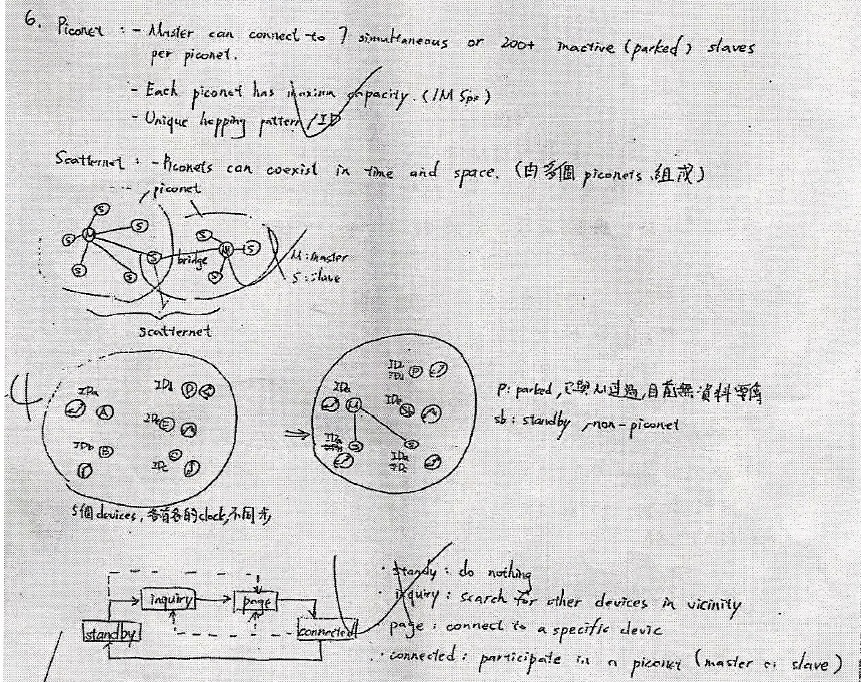 6. Piconet : - Master can connect to 7 simultaneous or 200+ inactive (parked) slaves
per piconet.
- Each piconet has maxima capacity. (1M Sps)
- Unique hopping pattern / ID
Scatternet : - Piconets can coexist in time and space. (由多個 piconets 組成)
piconet
S
S
S
M
S
S
S
S
S
M
S
S
bridge
M : master
S : slave
scatternet
-4
IDa
A
IDd
D
IDe
E
IDb
B
IDc
C
⇒
IDa
M
IDa
IDd
P
IDb
sb
IDa
S
IDa
IDc
S
P : parked, 已與M过, 目前無資料要傳
sb : standby, non-piconet
5個 devices, 各有各的clock, 不同步,
inquiry
page
standby
connected
· standy : do nothing
· inquiry : search for other devices in vicinity
· page : connect to a specific devic
· connected : participate in a piconet (master or slave)